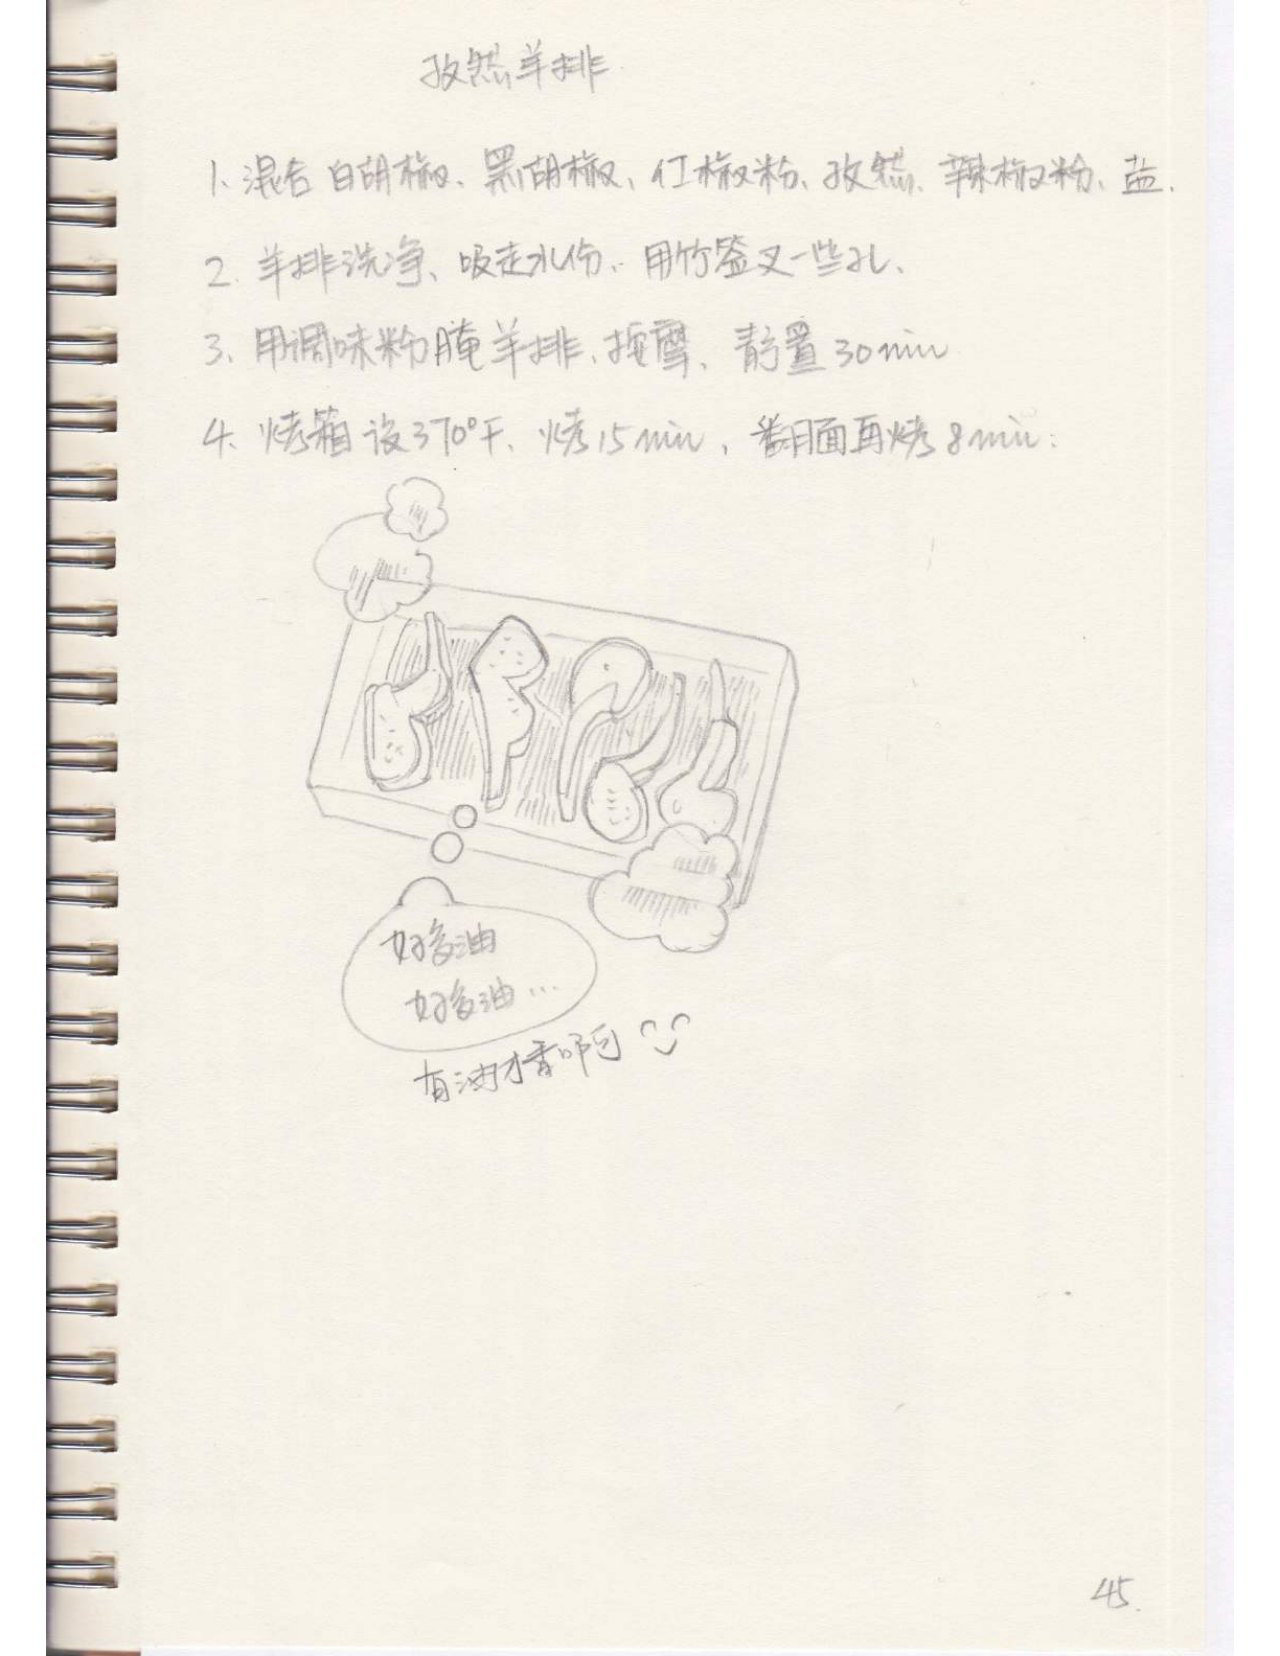 孜然羊排
1、混合白胡椒、黑胡椒、红椒粉、孜然、辣椒粉、盐、
2、羊排洗净、吸走水份、用竹签叉一些孔、
3、用调味粉腌羊排、按摩、静置30min
4、烤箱设370°F、烤15min，翻面再烤8min：
好多油
好多油…
有油才香啊
45.